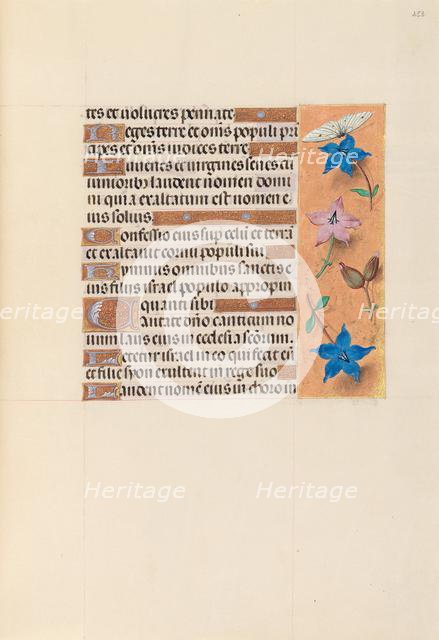 153
tes et volucres pennate
Reges terre et om̄s populi pri
cipes et om̄s iudices terre
Iuvenes et virgines senes cū
iunioribꝰ laudent nomen domi
ni quia exaltatum est nomen e
ius solius
Confessio eius sup celū et terrā
et exaltavit cornu populi sui
Hymnus omnibus sanctis e
ius filiis israel populo appropin
quanti sibi
Cantate dn̄o canticum no
vum laus eius in ecclesia sc̄orum.
Letetur israel in eo qui fecit eū
et filie syon exultent in rege suo
Laudent nomē eius in choro in
Heritage
Heritage
Heritage
Heritage
Heritage
Heritage
Heritage
Heritage